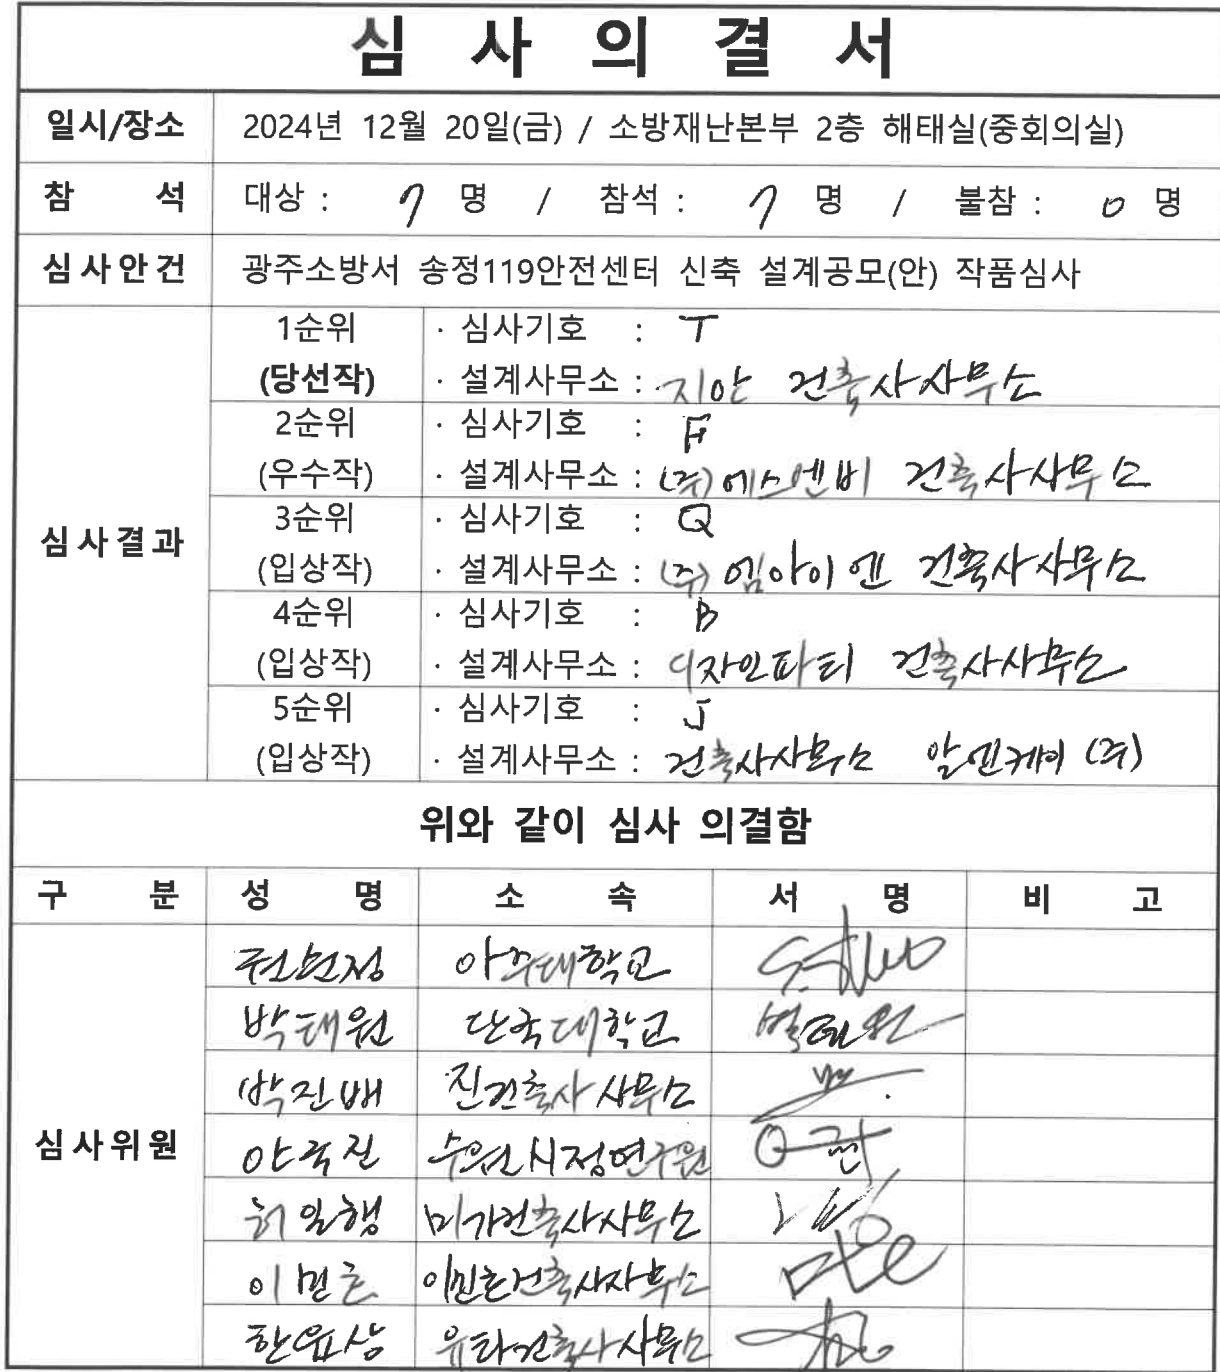 심 사 의 결 서
일시/장소 2024년 12월 20일(금) / 소방재난본부 2층 해태실(중회의실)
참 석 대상 : 7 명 / 참석 : 7 명 / 불참 : 0 명
심사안건 광주소방서 송정119안전센터 신축 설계공모(안) 작품심사
심사결과
1순위 · 심사기호 : T
(당선작) · 설계사무소 : 지안 건축사사무소
2순위 · 심사기호 : F
(우수작) · 설계사무소 : (주)에스엔비 건축사사무소
3순위 · 심사기호 : Q
(입상작) · 설계사무소 : (주)엠아이엔 건축사사무소
4순위 · 심사기호 : B
(입상작) · 설계사무소 : 디자인파티 건축사사무소
5순위 · 심사기호 : J
(입상작) · 설계사무소 : 건축사사무소 알엔케이(주)
위와 같이 심사 의결함
구 분 성 명 소 속 서 명 비 고
심사위원
아주대학교
박태원 단국대학교
박진배 진건축사사무소
안국진 수원시정연구원
허일행 미가건축사사무소
이민호 이민호건축사사무소
한유상 유타건축사사무소